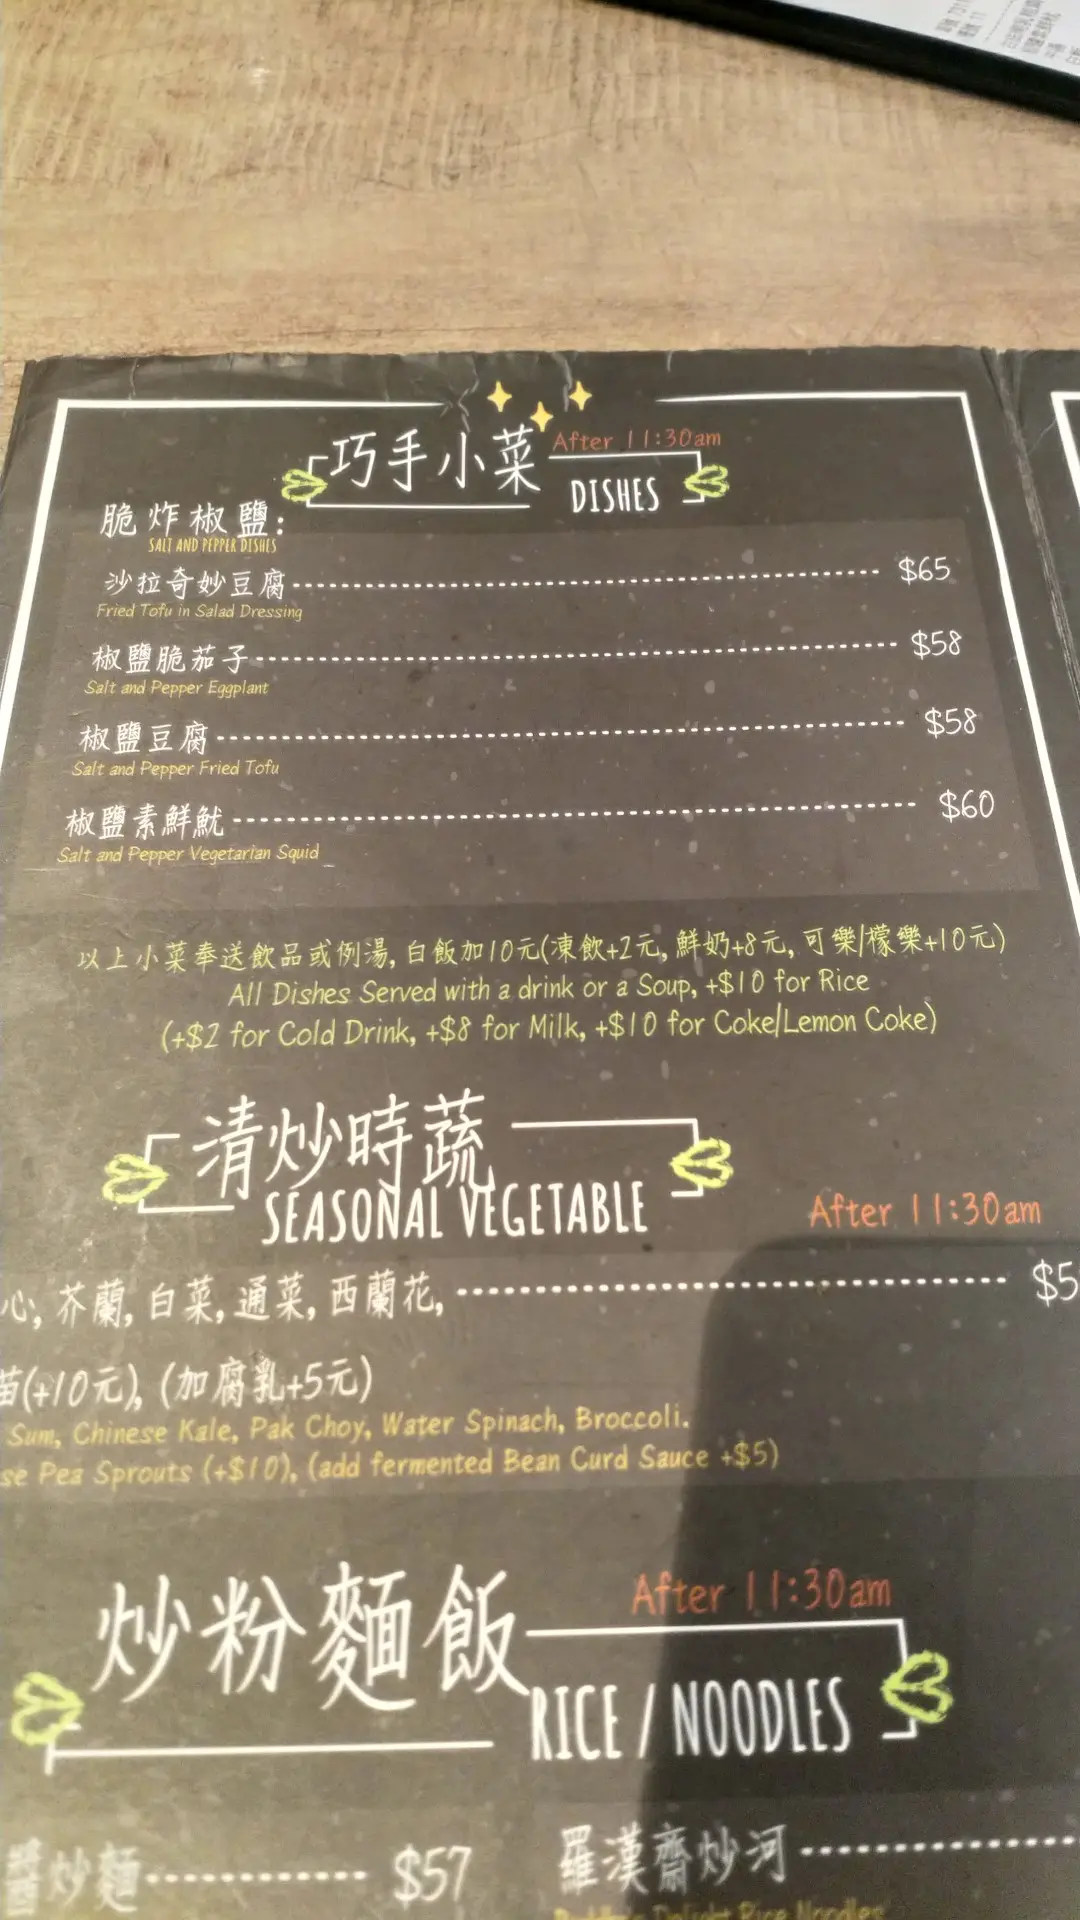 巧手小菜 After 11:30am
DISHES
脆炸椒鹽:
SALT AND PEPPER DISHES
沙拉奇妙豆腐 $65
Fried Tofu in Salad Dressing
椒鹽脆茄子 $58
Salt and Pepper Eggplant
椒鹽豆腐 $58
Salt and Pepper Fried Tofu
椒鹽素鮮魷 $60
Salt and Pepper Vegetarian Squid
以上小菜奉送飲品或例湯, 白飯加10元(凍飲+2元, 鮮奶+8元, 可樂/檬樂+10元)
All Dishes Served with a drink or a Soup, +$10 for Rice
(+$2 for Cold Drink, +$8 for Milk, +$10 for Coke/Lemon Coke)
清炒時蔬
SEASONAL VEGETABLE
After 11:30am
心, 芥蘭, 白菜, 通菜, 西蘭花, $5
苗(+10元), (加腐乳+5元)
Sum, Chinese Kale, Pak Choy, Water Spinach, Broccoli.
se Pea Sprouts (+$10), (add fermented Bean Curd Sauce +$5)
炒粉麵飯 After 11:30am
RICE / NOODLES
醬炒麵 $57
羅漢齋炒河
Delight Rice Noodles